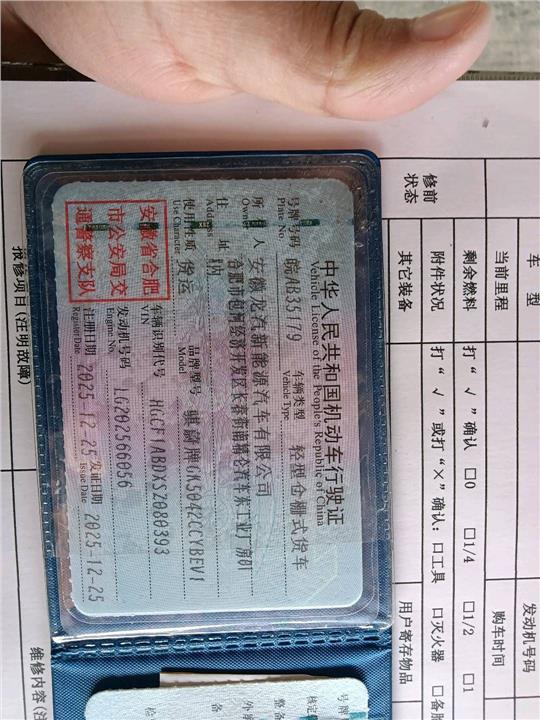 中华人民共和国机动车行驶证
Vehicle License of the People's Republic of China
号牌号码 皖AB35179 车辆类型 轻型仓栅式货车
Plate No. Vehicle Type
所有人 安徽龙汽新能源汽车有限公司
Owner
住址 合肥市包河经济开发区长春街南
Address
使用性质 货运 品牌型号 GK5042CCYBEV1
Use Character Model
车辆识别代号 HGCF1ABDXSZ080393
VIN
发动机号码 LG202566056
Engine No.
注册日期 2025-12-25 发证日期 2025-12-25
Register Date Issue Date
安徽省合肥
市公安局交
通警察支队
号牌
核定
整备
外廓
备
检
车 型 发动机号码
当前里程 购车时间
修前
状态
剩余燃料 打“√”确认 □0 □1/4 □1/2 □1
附件状况 打“√”或打“×”确认: 口工具 口灭火器 口备胎
其它装备 用户寄存物品
报修项目(注明故障) 维修内容(注